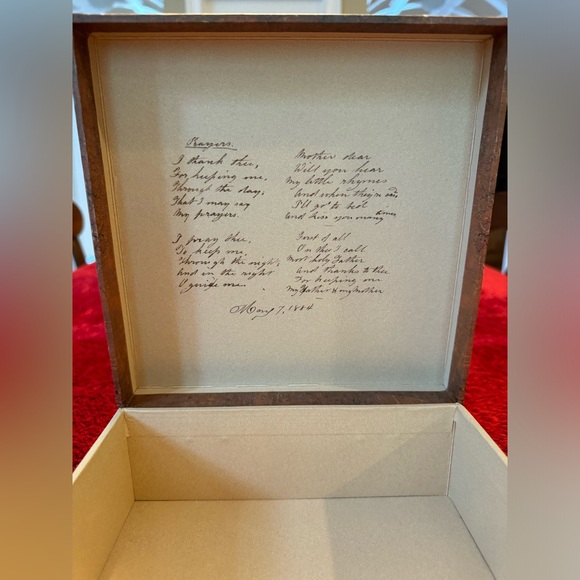 Prayers.
I thank thee,
For keeping me,
Through the day,
That I may say
My prayers.
I pray thee,
To keep me,
Through the night,
And in the night
O guide me.
Mother dear
Will you hear
My little rhymes
And when they're said,
I'll go to bed
And kiss you many times
First of all
On thee I call
Most holy Father
And thanks to thee
For keeping me
My father & my Mother
May 7, 1884